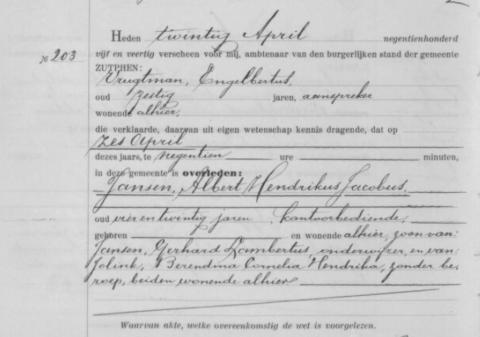 Heden twintig April negentienhonderd
№ 203
vijf en veertig verscheen voor mij, ambtenaar van den burgerlijken stand der gemeente
ZUTPHEN:
Vrugtman, Engelbertus,
oud zestig jaren, aanspreker
wonende alhier,
die verklaarde, daarvan uit eigen wetenschap kennis dragende, dat op
zes April
dezes jaars, te negentien ure minuten,
in deze gemeente is overleden:
Jansen, Albert Hendrikus Jacobus,
oud vier en twintig jaren kantoorbediende,
geboren en wonende alhier, zoon van:
Jansen, Gerhard Lambertus, onderwijzer, en van:
Jolink, Berendina Cornelia Hendrika, zonder be-
roep, beiden wonende alhier
Waarvan akte, welke overeenkomstig de wet is voorgelezen.